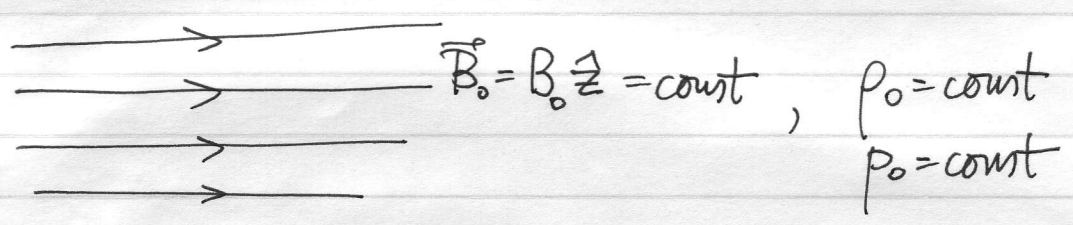 B⃗₀ = B₀ẑ = const , ρ₀ = const
p₀ = const